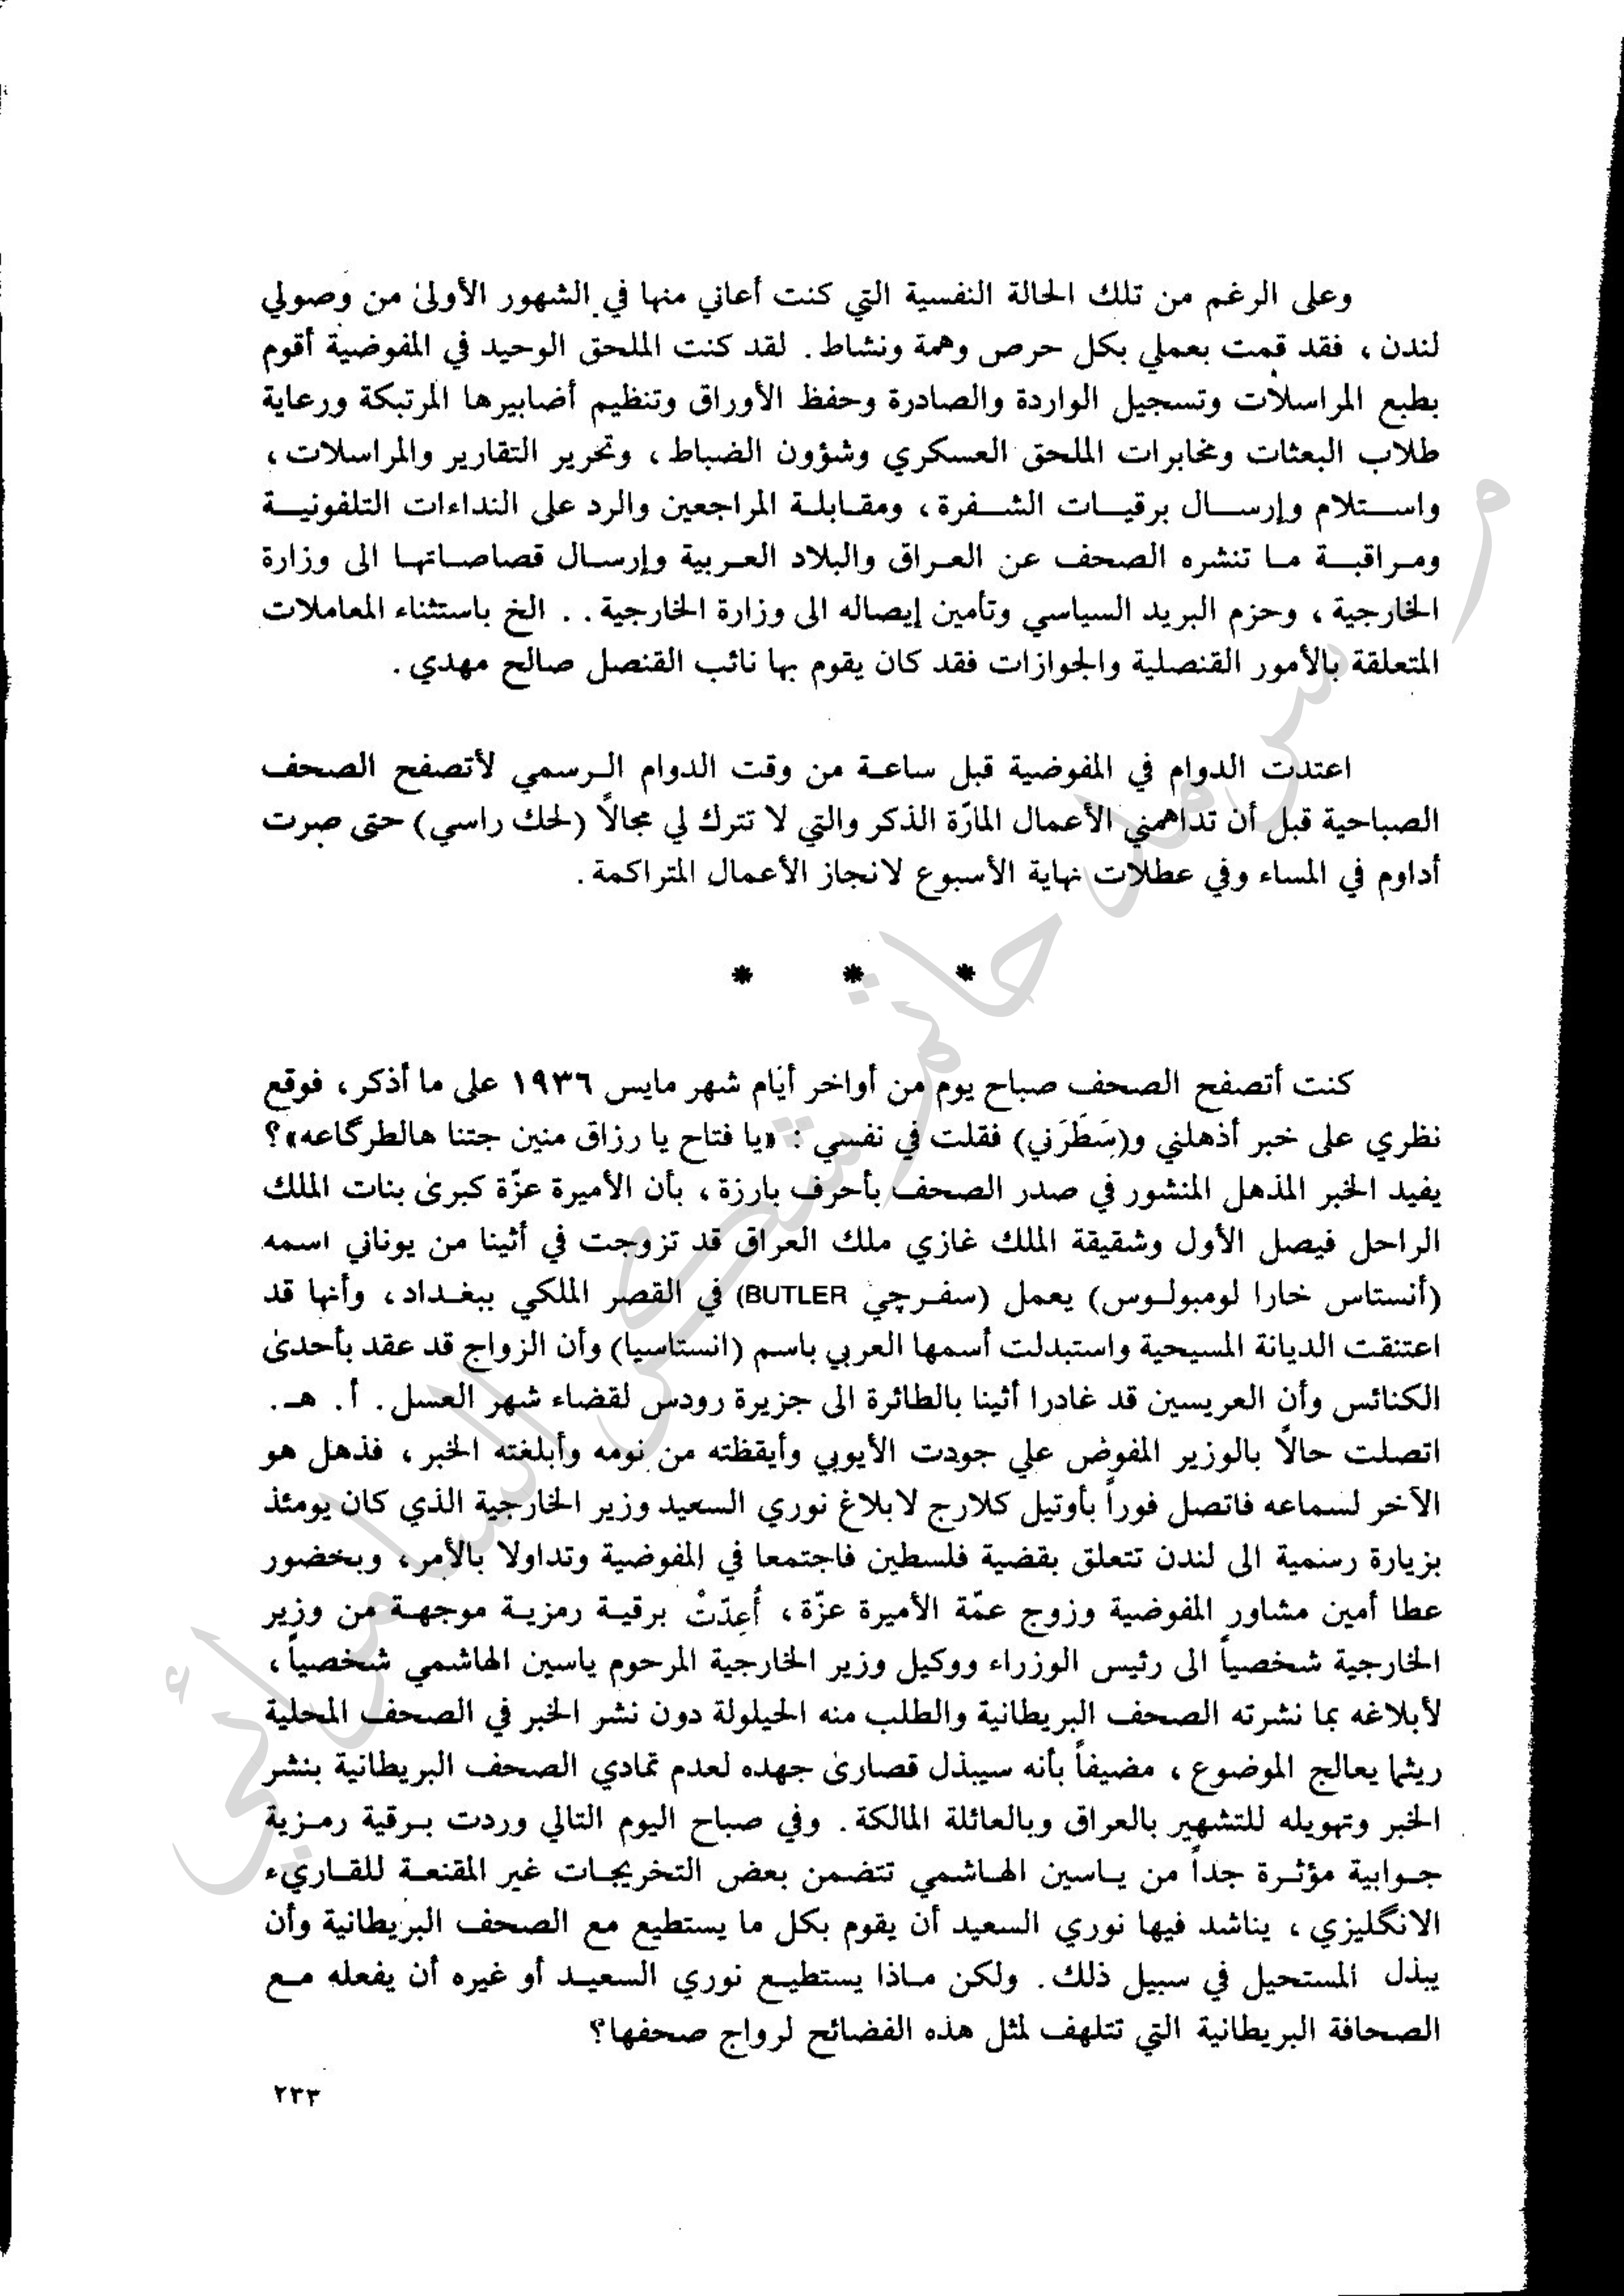 وعلى الرغم من تلك الحالة النفسية التي كنت أعاني منها في الشهور الأولىٰ من وصولي
لندن ، فقد قمت بعملي بكل حرص وهمة ونشاط . لقد كنت الملحق الوحيد في المفوضية أقوم
بطبع المراسلات وتسجيل الواردة والصادرة وحفظ الأوراق وتنظيم أضابيرها المرتبكة ورعاية
طلاب البعثات ومخابرات الملحق العسكري وشؤون الضباط ، وتحرير التقارير والمراسلات ،
واستلام وإرسال برقيات الشفرة ، ومقابلة المراجعين والرد على النداءات التلفونية
ومراقبة ما تنشره الصحف عن العراق والبلاد العربية وإرسال قصاصاتها الى وزارة
الخارجية ، وحزم البريد السياسي وتأمين إيصاله الى وزارة الخارجية . . الخ باستثناء المعاملات
المتعلقة بالأمور القنصلية والجوازات فقد كان يقوم بها نائب القنصل صالح مهدي .
اعتدت الدوام في المفوضية قبل ساعة من وقت الدوام الرسمي لأتصفح الصحف
الصباحية قبل أن تداهمني الأعمال المارّة الذكر والتي لا تترك لي مجالاً (لحك راسي) حتى صرت
أداوم في المساء وفي عطلات نهاية الأسبوع لانجاز الأعمال المتراكمة .
* * *
كنت أتصفح الصحف صباح يوم من أواخر أيّام شهر مايس ١٩٣٦ على ما أذكر ، فوقع
نظري على خبر أذهلني و(سَطَرَني) فقلت في نفسي : «يا فتاح يا رزاق منين جتنا هالطرگاعه»؟
يفيد الخبر المذهل المنشور في صدر الصحف بأحرف بارزة ، بأن الأميرة عزّة كبرىٰ بنات الملك
الراحل فيصل الأول وشقيقة الملك غازي ملك العراق قد تزوجت في أثينا من يوناني اسمه
(أنستاس خارا لومبولوس) يعمل (سفرچي BUTLER) في القصر الملكي ببغداد ، وأنها قد
اعتنقت الديانة المسيحية واستبدلت أسمها العربي باسم (انستاسيا) وأن الزواج قد عقد بأحدىٰ
الكنائس وأن العريسين قد غادرا أثينا بالطائرة الى جزيرة رودس لقضاء شهر العسل . أ . هـ .
اتصلت حالاً بالوزير المفوض علي جودت الأيوبي وأيقظته من نومه وأبلغته الخبر ، فذهل هو
الآخر لسماعه فاتصل فوراً بأوتيل كلارج لابلاغ نوري السعيد وزير الخارجية الذي كان يومئذ
بزيارة رسمية الى لندن تتعلق بقضية فلسطين فاجتمعا في المفوضية وتداولا بالأمر ، وبحضور
عطا أمين مشاور المفوضية وزوج عمّة الأميرة عزّة ، أُعِدّتْ برقية رمزية موجهة من وزير
الخارجية شخصياً الى رئيس الوزراء ووكيل وزير الخارجية المرحوم ياسين الهاشمي شخصياً ،
لأبلاغه بما نشرته الصحف البريطانية والطلب منه الحيلولة دون نشر الخبر في الصحف المحلية
ريثما يعالج الموضوع ، مضيفاً بأنه سيبذل قصارىٰ جهده لعدم تمادي الصحف البريطانية بنشر
الخبر وتهويله للتشهير بالعراق وبالعائلة المالكة . وفي صباح اليوم التالي وردت برقية رمزية
جوابية مؤثرة جداً من ياسين الهاشمي تتضمن بعض التخريجات غير المقنعة للقاريء
الانگليزي ، يناشد فيها نوري السعيد أن يقوم بكل ما يستطيع مع الصحف البريطانية وأن
يبذل المستحيل في سبيل ذلك . ولكن ماذا يستطيع نوري السعيد أو غيره أن يفعله مع
الصحافة البريطانية التي تتلهف لمثل هذه الفضائح لرواج صحفها؟
٢٣٣
م سرمد حاتم شكر السامرائي